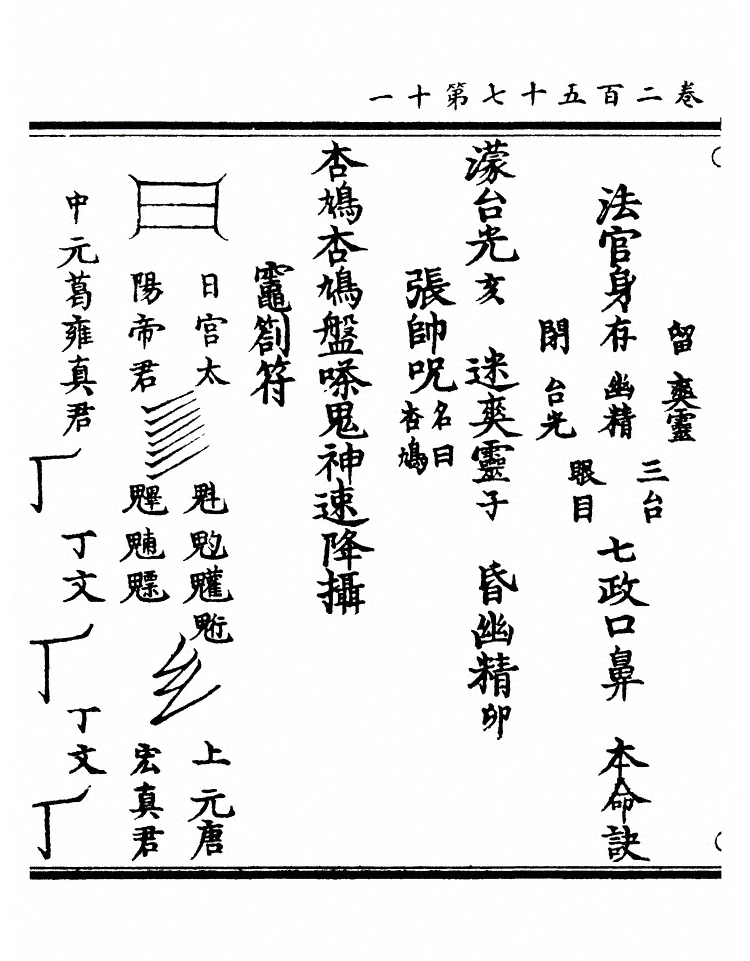 卷二百五十七第十一
留爽靈
三台
法官身存幽精
七政口鼻
本命訣
閉台光
眼目
濛台光亥
迷爽靈子
昏幽精卯
張帥呪名曰杏鳩
杏鳩杏鳩盤嗏鬼神速降攝
劄符
日宮太
陽帝君
魁䰢
魓魒
上元唐
宏真君
中元葛雍真君
丁文
丁文